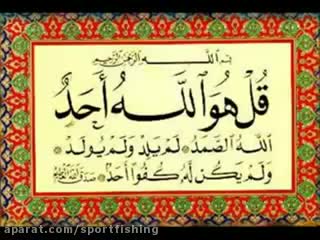 بسم الله الرحمن الرحيم
قُلْ هُوَ اللَّهُ أَحَدٌ
اللَّهُ الصَّمَدُ لَمْ يَلِدْ وَلَمْ يُولَدْ
وَلَمْ يَكُن لَّهُ كُفُوًا أَحَدٌ صدق الله العظيم
aparat.com/sportfishing